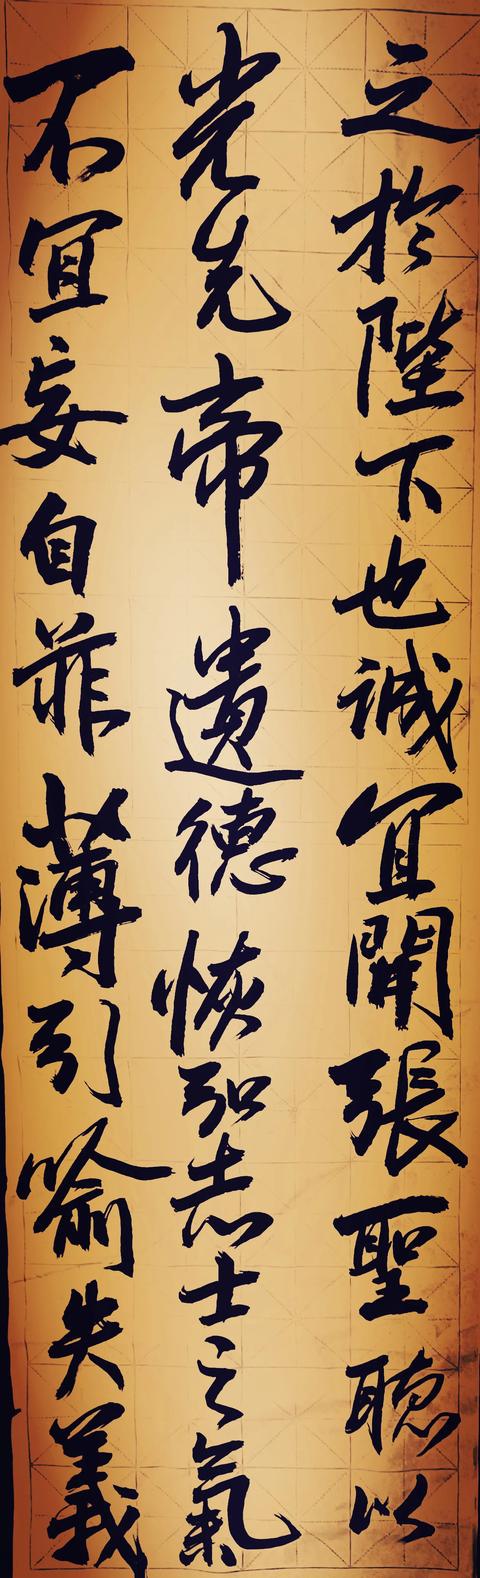 之於陛下也誠宜開張聖聽以
光先帝遺德恢弘志士之氣
不宜妄自菲薄引喻失義